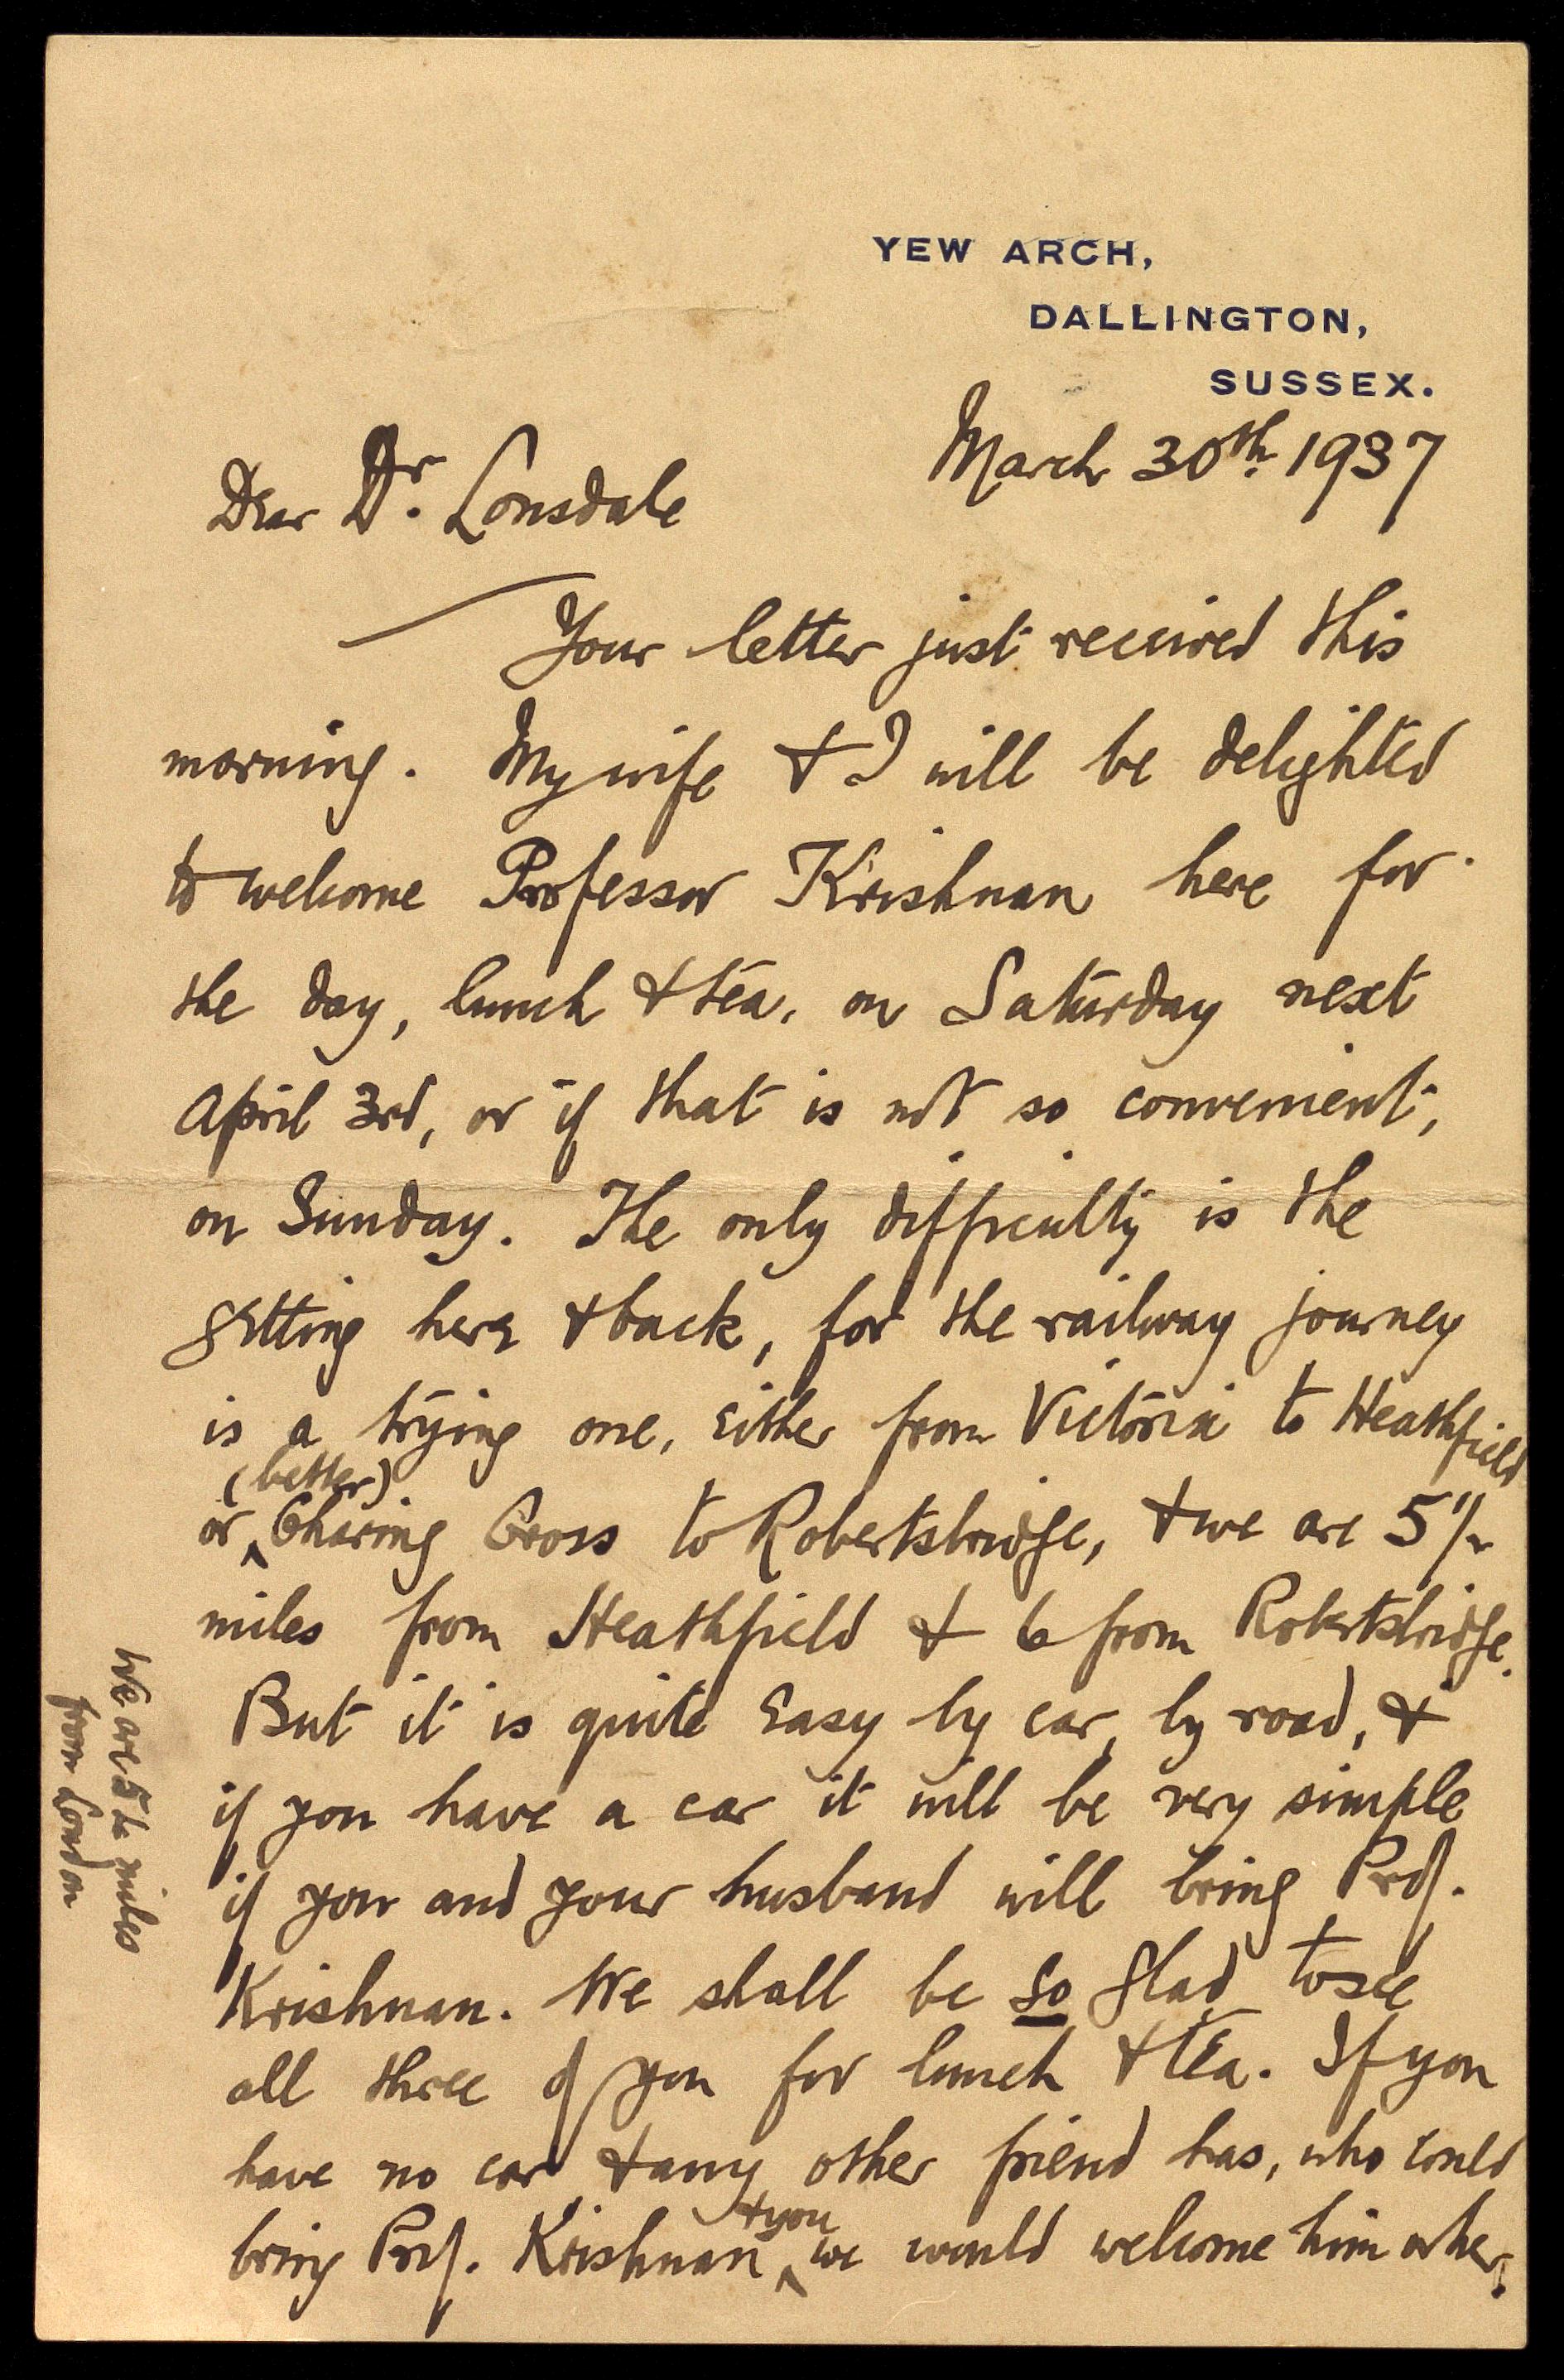 YEW ARCH,
DALLINGTON,
SUSSEX.
March 30th. 1937
Dear Dr. Lonsdale
Your letter just received this
morning. My wife & I will be delighted
to welcome Professor Krishnan here for
the day, lunch & tea, on Saturday next
April 3rd, or if that is not so convenient,
on Sunday. The only difficulty is the
getting here & back, for the railway journey
is a trying one, either from Victoria to Heathfield
(better)
or ^ Charing Cross to Robertsbridge, & we are 5½
miles from Heathfield & 6 from Robertsbridge.
But it is quite easy by car, by road, &
if you have a car it will be very simple
if you and your husband will bring Prof.
Krishnan. We shall be so glad to see
all three of you for lunch & tea. If you
have no car & any other friend has, who could
bring Prof. Krishnan ^ we would welcome him or her.
& you
We are 52 miles
from London